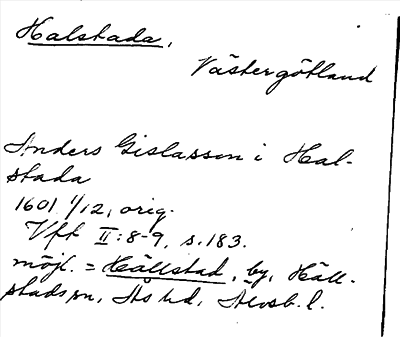 Halstada,
Västergötland
Anders Gislasson i Hal-
stada
1601 1/12, orig.
Vft II:8-9, s.183.
möjl. = Hällstad, by, Häll-
stads sn, Ås hd, Älvsb. l.